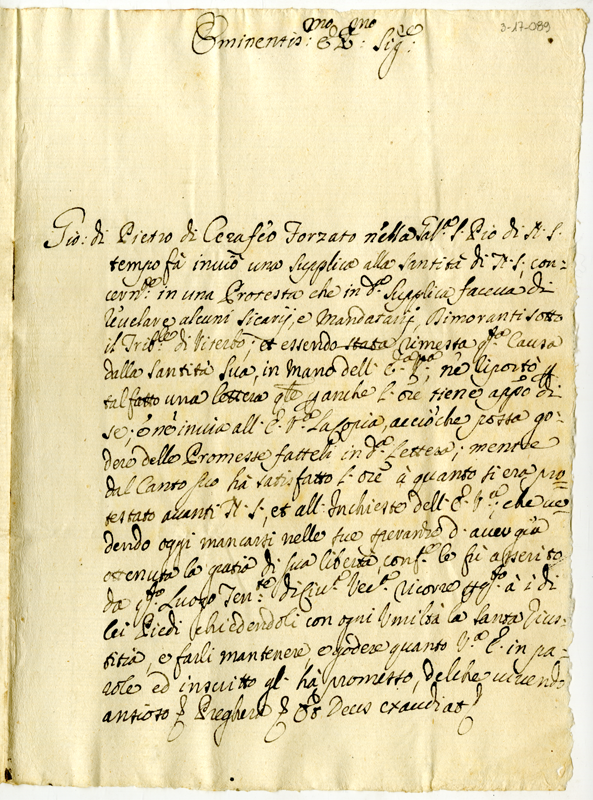 3-17-089
Eminentis:mo e R:mo Sig:re
Gio: di Pietro di Cerafeo Forzato nella Gal:a S: Pio di N: S:
tempo fà inviò una supplica alla Santità di N: S:, con-
cern:te in una Protesta che in d:a supplica faceva di
revelare alcuni Sicarij, e Mandatarij, Dimoranti sotto
il Trib:le di Viterbo; et essendo stata rimessa q:sta Causa
dalla Santità Sua, in mano dell' E: V:ra, ne riportò p
tal fatto una lettera q:le anche l' Ore tiene app:o di
se, e ne invia all' E: V:ra la Copia, acciò che possa go-
dere delle Promesse fatteli in d:a lettera; mentre
dal Canto suo hà satisfatto l' Ore à quanto si era pro
testato avanti N: S:, et all' Inchieste dell' E: V:ra, che ve
dendo oggi mancarsi nelle sue speranze d' aver già
ottenuta la gratia di sua libertà, conf:e le fù asserito
da q:sto Luogo Ten:te di Civ:a Vec:a ricorre à i di
lei Piedi chiedendoli con ogni Umiltà la santa Gius-
titia, e farli mantenere, e godere quanto V:ra E: in pa-
role ed in scritto gl' hà promesso, del che vivendo
ansioso Pregherà Deus exaudiat